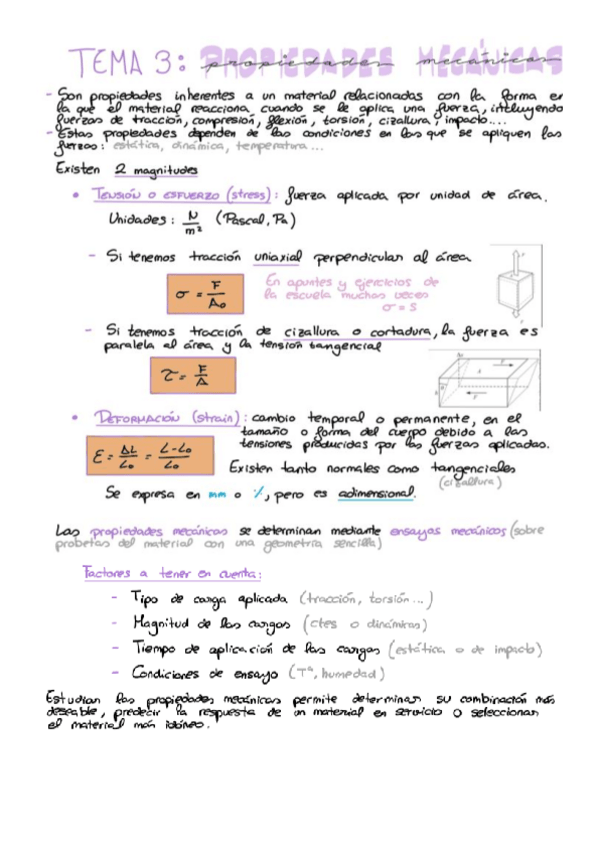 TEMA 3: PROPIEDADES MECÁNICAS
- Son propiedades inherentes a un material relacionadas con la forma en
la que el material reacciona cuando se le aplica una fuerza, incluyendo
fuerzas de tracción, compresión, flexión, torsión, cizallura, impacto....
- Estas propiedades dependen de las condiciones en las que se apliquen las
fuerzas: estática, dinámica, temperatura...
Existen 2 magnitudes
• TENSIÓN O ESFUERZO (stress): fuerza aplicada por unidad de área.
Unidades: N/m² (Pascal, Pa)
- Si tenemos tracción uniaxial perpendicular al área
σ = F/A₀
En apuntes y ejercicios de
la escuela muchas veces
σ = S
- Si tenemos tracción de cizallura o cortadura, la fuerza es
paralela al área y la tensión tangencial
τ = F/A
• DEFORMACIÓN (strain): cambio temporal o permanente, en el
tamaño o forma del cuerpo debido a las
tensiones producidas por las fuerzas aplicadas.
ε = ΔL/L₀ = L-L₀/L₀
Existen tanto normales como tangenciales
(cizallura)
Se expresa en mm o %, pero es adimensional.
Las propiedades mecánicas se determinan mediante ensayos mecánicos (sobre
probetas del material con una geometría sencilla)
Factores a tener en cuenta:
- Tipo de carga aplicada (tracción, torsión...)
- Magnitud de las cargas (ctes o dinámicas)
- Tiempo de aplicación de las cargas (estática o de impacto)
- Condiciones de ensayo (Tª, humedad)
Estudiar las propiedades mecánicas permite determinar su combinación más
deseable, predecir la respuesta de un material en servicio o seleccionar
el material más idóneo.